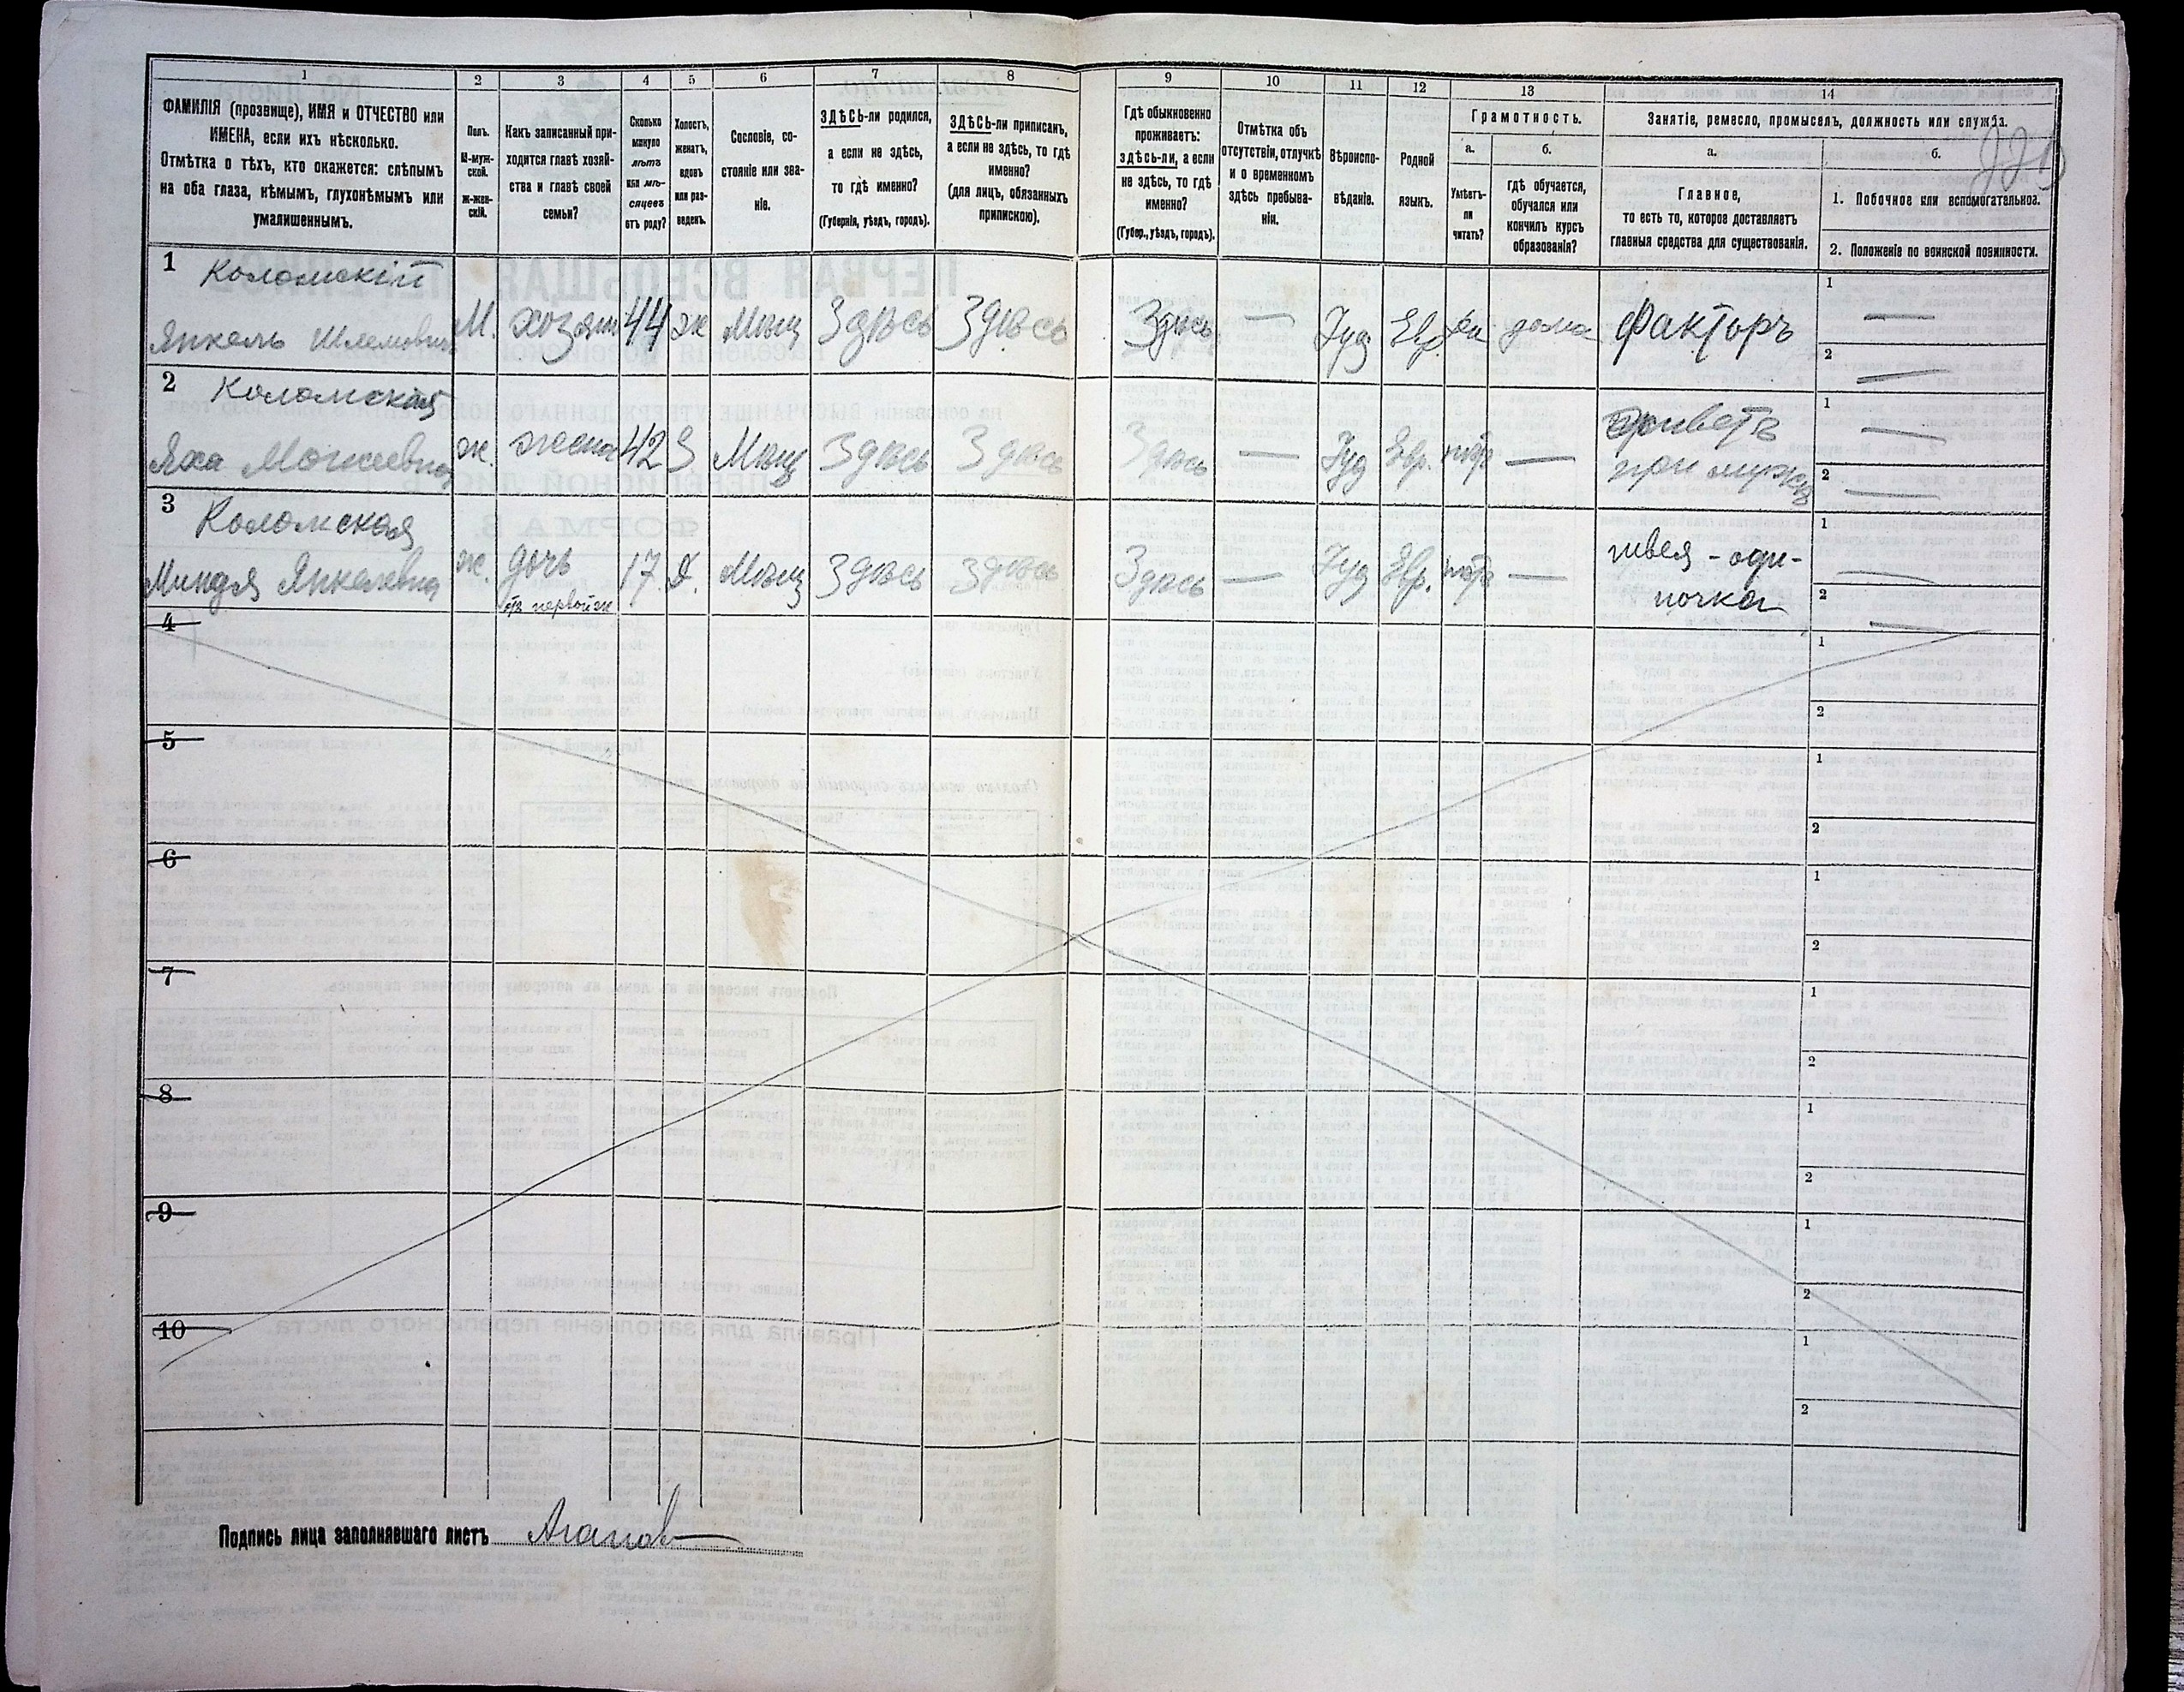 1 2 3 4 5 6 7 8 9 10 11 12 13 14
ФАМИЛІЯ (прозвище), ИМЯ и ОТЧЕСТВО или
ИМЕНА, если ихъ нѣсколько.
Отмѣтка о тѣхъ, кто окажется: слѣпымъ
на оба глаза, нѣмымъ, глухонѣмымъ или
умалишеннымъ.
Полъ.
М-муж-
ской.
Ж-жен-
скій.
Какъ записанный при-
ходится главѣ хозяй-
ства и главѣ своей
семьи?
Сколько
минуло
лѣтъ
или мѣ-
сяцевъ
отъ роду?
Холостъ,
женатъ,
вдовъ
или раз-
веденъ.
Сословіе, со-
стояніе или зва-
ніе.
ЗДѢСЬ-ли родился,
а если не здѣсь,
то гдѣ именно?
(Губернія, уѣздъ, городъ).
ЗДѢСЬ-ли приписанъ,
а если не здѣсь, то гдѣ
именно?
(для лицъ, обязанныхъ
припискою).
Гдѣ обыкновенно
проживаетъ:
здѣсь-ли, а если
не здѣсь, то гдѣ
именно?
(Губер., уѣздъ, городъ).
Отмѣтка объ
отсутствіи, отлучкѣ
и о временномъ
здѣсь пребыва-
ніи.
Вѣроиспо-
вѣданіе.
Родной
языкъ.
Грамотность.
а.
Умѣетъ-
ли
читать?
б.
гдѣ обучается,
обучался или
кончилъ курсъ
образованія?
Занятіе, ремесло, промыселъ, должность или служба.
а.
Главное,
то есть то, которое доставляетъ
главныя средства для существованія.
б.
1. Побочное или вспомогательное.
2. Положеніе по воинской повинности.
1 Коломскій
Янкель Шлемовичъ М. хозяинъ 44 ж Мѣщ Здѣсь Здѣсь Здѣсь — Іуд. Евр. да дома Факторъ 1 —
2 —
2 Коломская
Яха Мошеевна ж. жена 42 З Мѣщ Здѣсь Здѣсь Здѣсь — Іуд Евр. нѣтъ — живетъ 1 —
при мужѣ 2 —
3 Коломская
Миндля Янкелевна ж. дочь 17 Д. Мѣщ Здѣсь Здѣсь Здѣсь — Іуд Евр. нѣтъ — швея - оди- 1 —
отъ первой ж ночка 2 —
4 1
2
5 1
2
6 1
2
7 1
2
8 1
2
9 1
2
10 1
2
Подпись лица заполнявшаго листъ Агапов